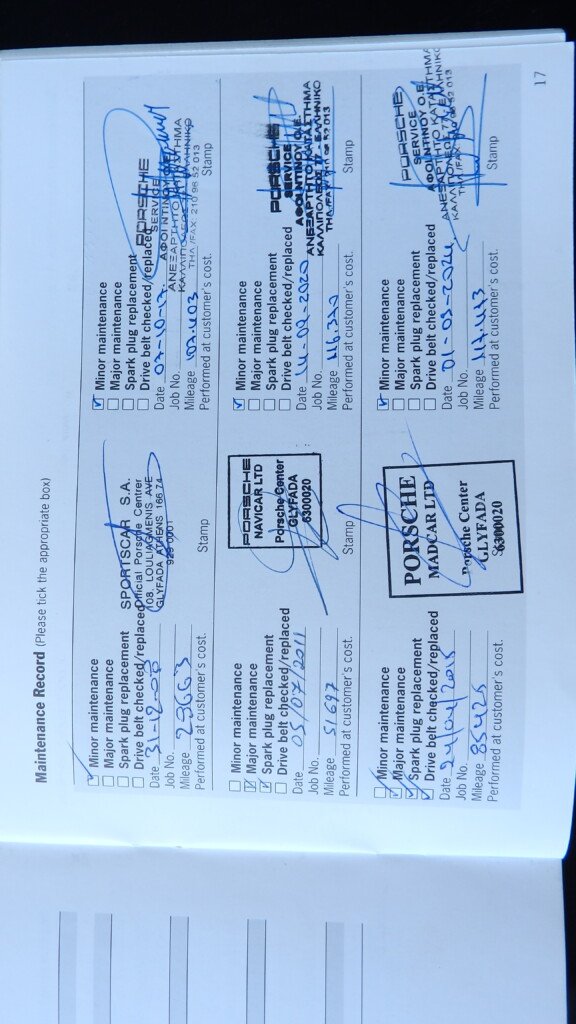 Maintenance Record (Please tick the appropriate box)
Minor maintenance
Major maintenance
Spark plug replacement
Drive belt checked/replaced
Date 31-12-08
Job No.
Mileage 29663
Performed at customer's cost.
SPORTSCAR S.A.
Official Porsche Centrer
108, LOULIAGMENIS AVE
GLYFADA ATHENS 166 74
Stamp
Minor maintenance
Major maintenance
Spark plug replacement
Drive belt checked/replaced
Date 05/07/2011
Job No.
Mileage 51697
Performed at customer's cost.
PORSCHE
NAVICAR LTD
Porsche Center
GLYFADA
6300020
Stamp
Minor maintenance
Major maintenance
Spark plug replacement
Drive belt checked/replaced
Date 24/04/2015
Job No.
Mileage 85425
Performed at customer's cost.
PORSCHE
MADCAR LTD
Porsche Center
GLYFADA
6300020
Minor maintenance
Major maintenance
Spark plug replacement
Drive belt checked/replaced
Date 07-10-17
Job No.
Mileage 103.403
Performed at customer's cost.
PORSCHE
SERVICE
ΑΦΟΙ ΝΤΙΝΟΥ Ο.Ε.
ΑΝΕΞΑΡΤΗΤΟ ΚΑΤΑΣΤΗΜΑ
ΚΑΛΛΙΠΟΛΕΩΣ ΕΛΛΗΝΙΚΟ
ΤΗΛ./FAX: 210 96 52 013
Stamp
Minor maintenance
Major maintenance
Spark plug replacement
Drive belt checked/replaced
Date 14-02-2020
Job No.
Mileage 116.330
Performed at customer's cost.
PORSCHE
SERVICE
ΑΦΟΙ ΝΤΙΝΟΥ Ο.Ε.
ΑΝΕΞΑΡΤΗΤΟ ΚΑΤΑΣΤΗΜΑ
ΚΑΛΛΙΠΟΛΕΩΣ 77 - ΕΛΛΗΝΙΚΟ
ΤΗΛ./FAX: 96 52 013
Stamp
Minor maintenance
Major maintenance
Spark plug replacement
Drive belt checked/replaced
Date 01-03-2021
Job No.
Mileage 117.473
Performed at customer's cost.
PORSCHE
SERVICE
ΑΦΟΙ ΝΤΙΝΟΥ Ο.Ε.
ΑΝΕΞΑΡΤΗΤΟ ΚΑΤΑΣΤΗΜΑ
ΚΑΛΛΙΠΟΛΕΩΣ 77 ΕΛΛΗΝΙΚΟ
ΤΗΛ./FAX: 96 52 013
Stamp
17